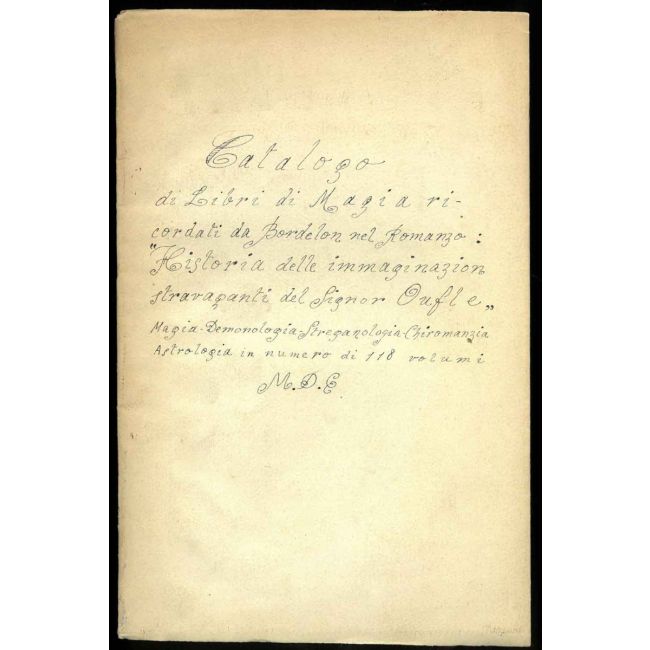 Catalogo
di Libri di Magia ri-
cordati da Bordelon nel Romanzo:
"Historia delle immaginazion
stravaganti del Signor Oufle„
Magia-Demonologia-Streganologia-Chiromanzia
Astrologia in numero di 118 volumi
M.D.E